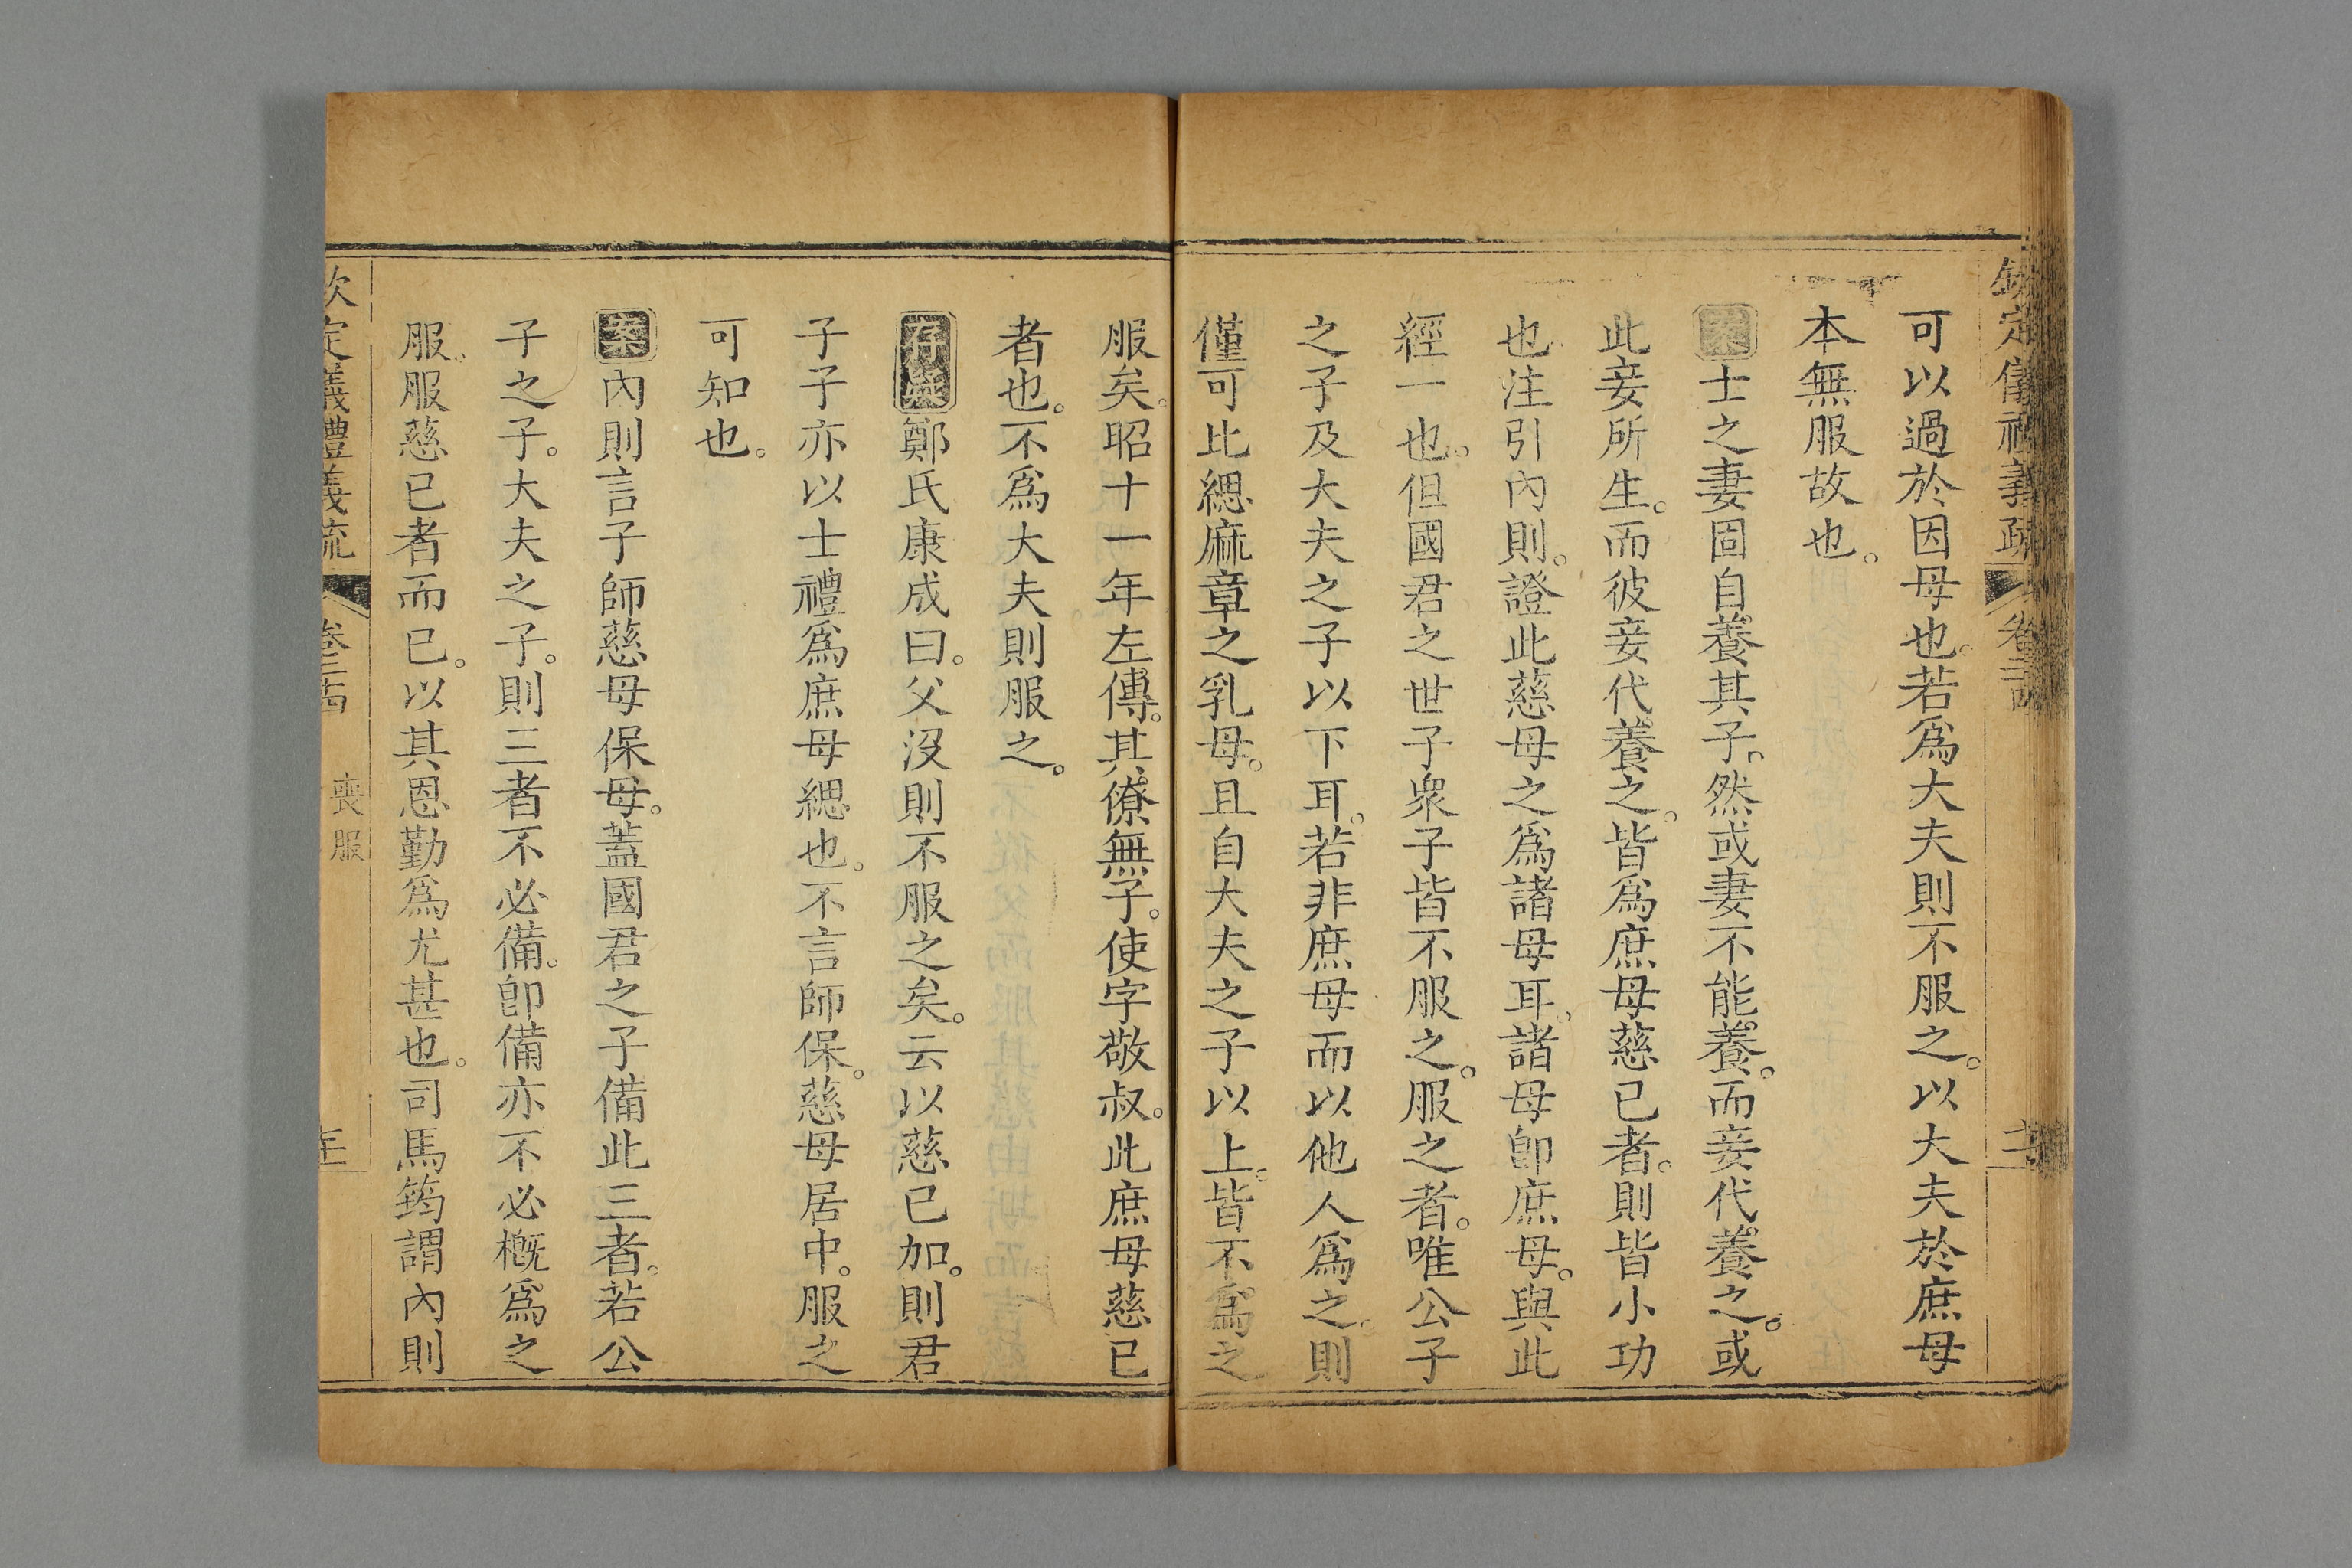 欽定儀禮義疏 卷二十四
可以過於因母也。若爲大夫則不服之。以大夫於庶母
本無服故也。
案士之妻固自養其子。然或妻不能養。而妾代養之。或
此妾所生。而彼妾代養之。皆爲庶母慈已者。則皆小功
也注引內則。證此慈母之爲諸母耳。諸母卽庶母。與此
經一也。但國君之世子衆子皆不服之。服之者。唯公子
之子及大夫之子以下耳。若非庶母而以他人爲之。則
僅可比緦麻章之乳母。且自大夫之子以上。皆不爲之
服矣。昭十一年左傳。其僚無子。使字敬叔。此庶母慈已
者也。不爲大夫則服之。
存疑鄭氏康成曰。父沒則不服之矣。云以慈已加。則君
子子亦以士禮爲庶母緦也。不言師保。慈母居中。服之
可知也。
案內則言子師慈母保母。蓋國君之子備此三者。若公
子之子。大夫之子。則三者不必備。卽備亦不必槪爲之
服。服慈已者而已。以其恩勤爲尤甚也。司馬筠謂內則
欽定儀禮義疏 卷二十四 喪服